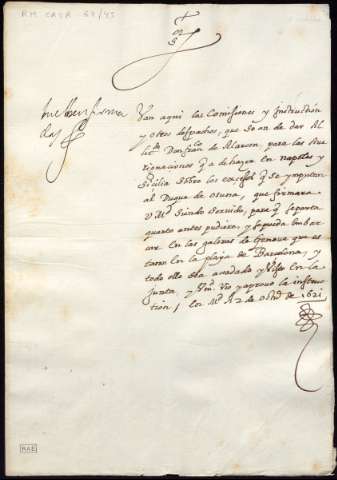 RM. CAJA 64/45
Van aqui las Comisiones y instruction
y otros despachos, que se an de dar Al
Don fran.co de Alarcon, para las Aue
riguaciones q a de hazer en napoles y
Sicilia sobre los excesos q se ymputan
al Duque de osuna, que firmara
V M.d siendo seruido, para q se parta
quanto antes pudiere, y se pueda embar
car en las galeras de Genoua que es
taran en la playa de Barcelona, y
todo esto esta acordado y visto en la
Junta, y vio y aprouo la instruc
tion, en M.d A 2 de de 1621
MAE